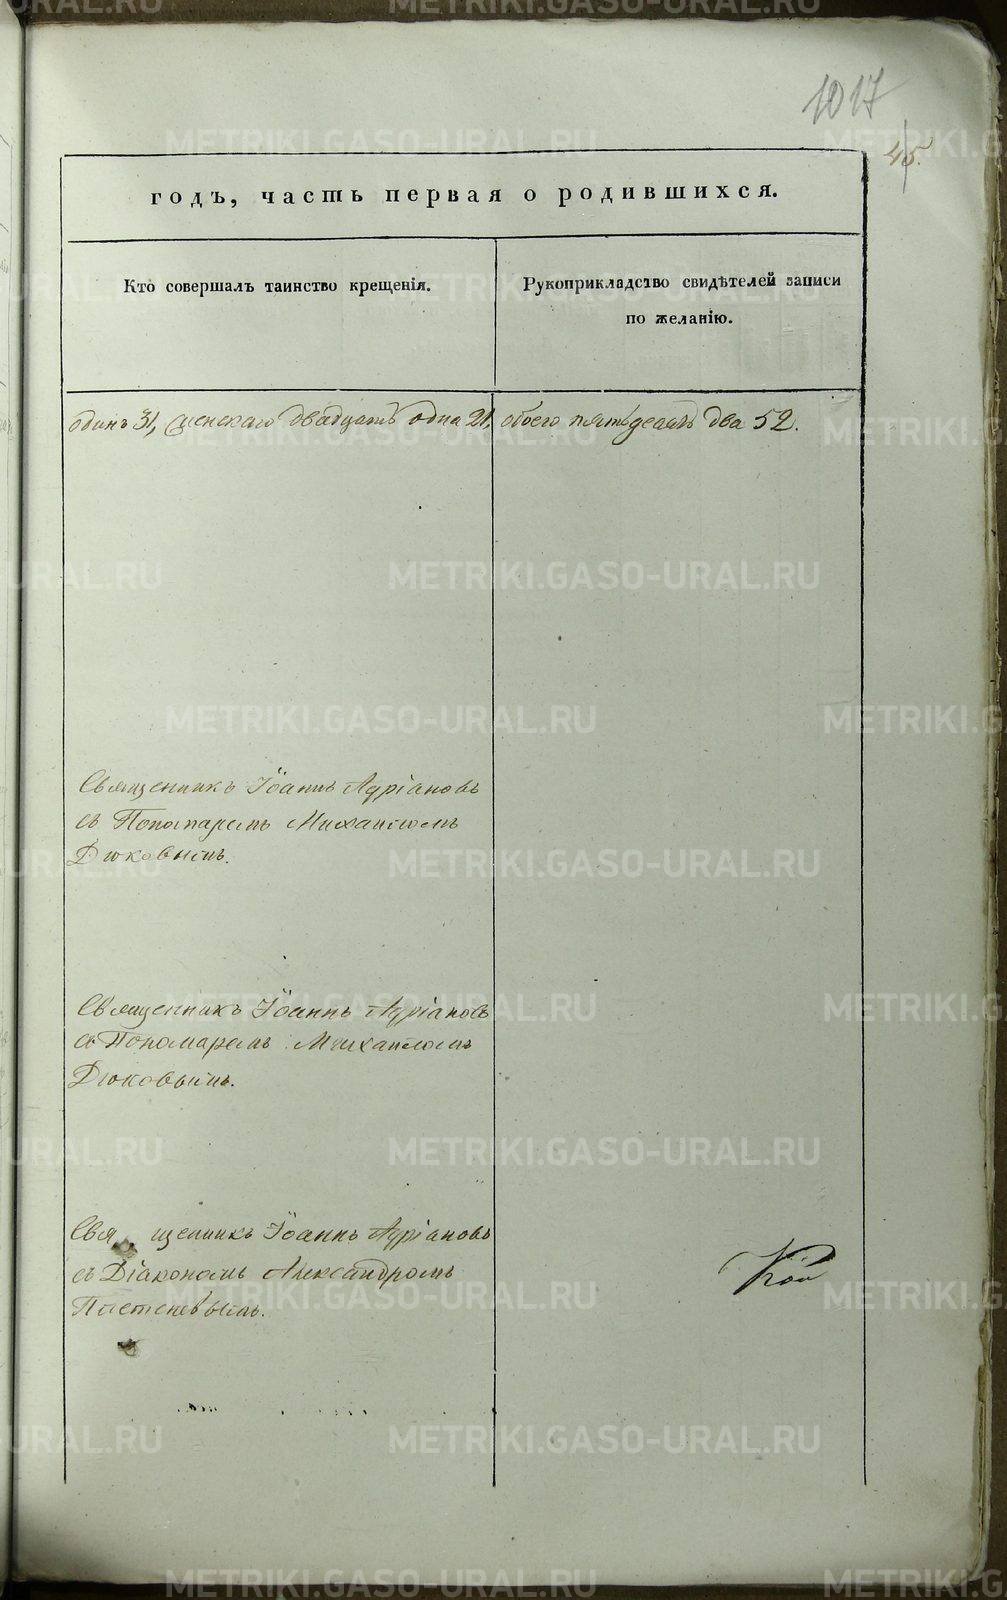 1017
45.
годъ, часть первая о родившихся.
Кто совершалъ таинство крещенія.
Рукоприкладство свидѣтелей записи
по желанію.
одинъ 31, женскаго двадцать одна 21, обоего пятьдесятъ два 52.
Священникъ Іоаннъ Адріановъ
съ Пономаремъ Михаиломъ
Дюковымъ.
Священникъ Іоаннъ Адріановъ
съ Пономаремъ Михаиломъ
Дюковымъ.
Священникъ Іоаннъ Адріановъ
съ Діакономъ Александромъ
METRIKI.GASO-URAL.RU